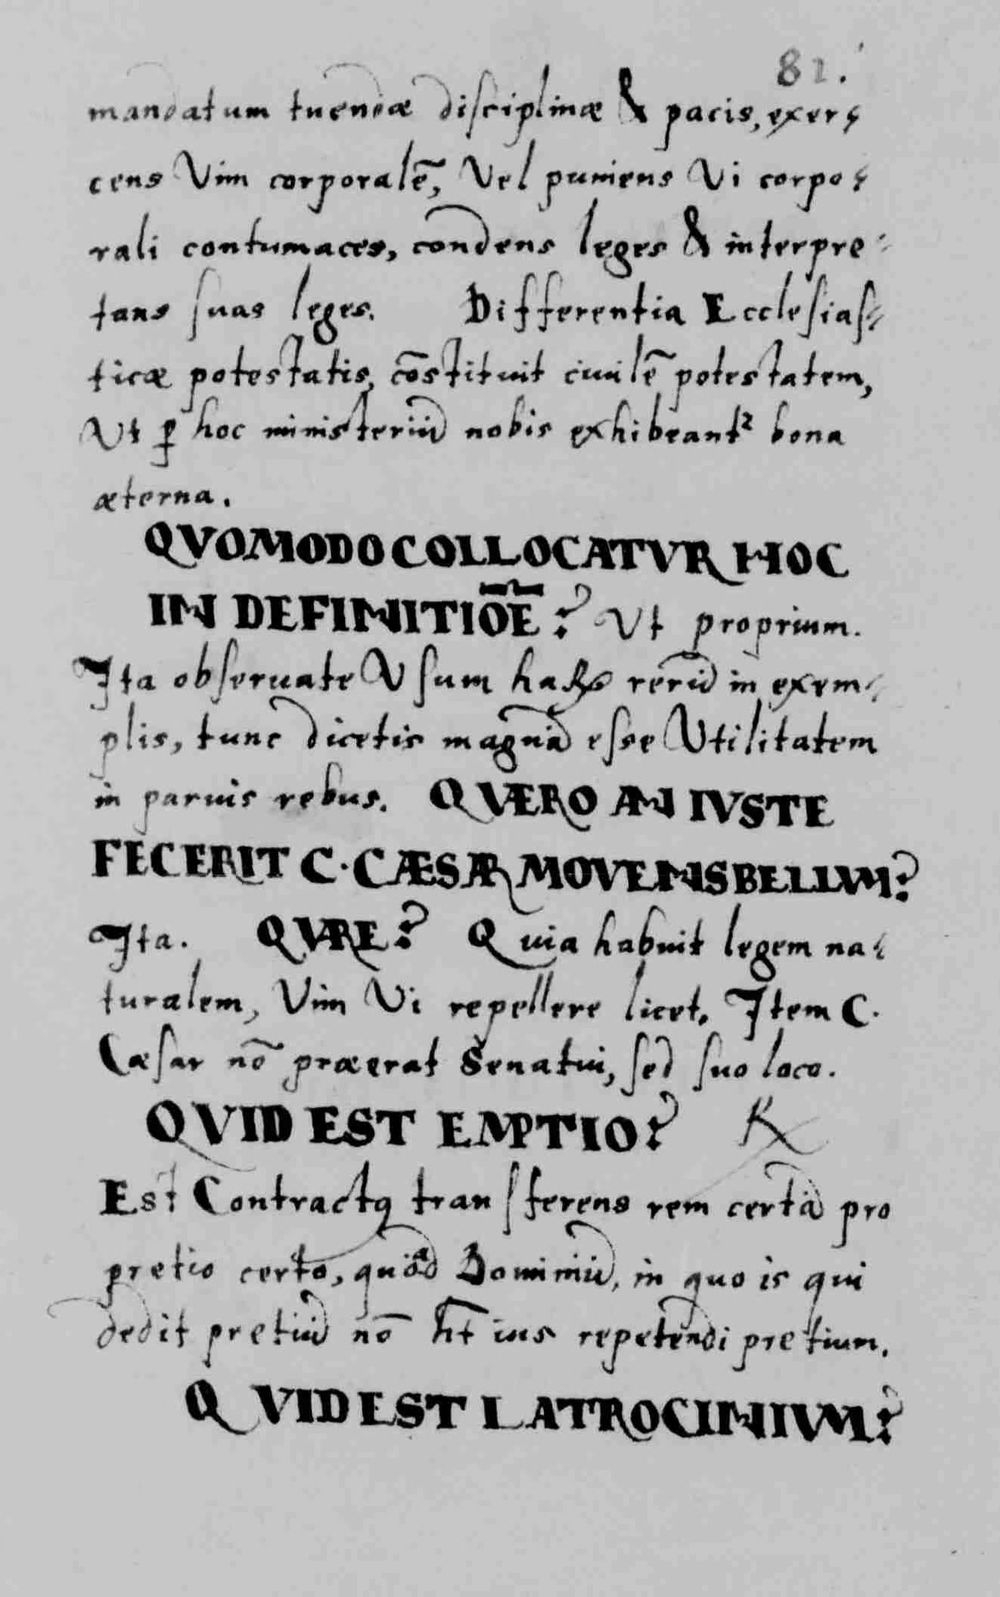 82.
mandatum tuendæ disciplinæ & pacis, exer⸗
cens Vim corporalē, Vel puniens Vi corpo⸗
rali contumaces, condens leges & interpre⸗
tans suas leges. Differentia Ecclesias⸗
ticæ potestatis, cōstituit ciuilē potestatem,
Ut ꝑ hoc ministeriū nobis exhibeant² bona
æterna.
QVOMODO COLLOCATVR HOC
IN DEFINITIŌE? Ut proprium.
Ita obseruate Vsum haꝝ rerū in exem⸗
plis, tunc dicetis magnā esse Vtilitatem
in paruis rebus. QVÆRO AN IVSTE
FECERIT C. CÆSAR MOVENS BELLVM?
Ita. QVARE? Quia habuit legem na⸗
turalem, Vim Vi repellere licet. Item C.
Cæsar nō præerat Senatui, sed suo loco.
QVID EST EMPTIO? ℞
Est Contractꝯ transferens rem certā pro
pretio certo, quoad Dominiū, in quo is qui
dedit pretiū nō ht̄ ius repetendi pretium.
QVID EST LATROCINIVM?